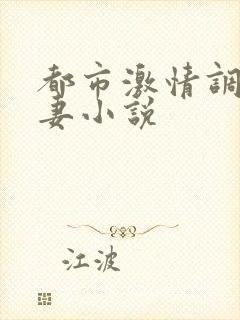 都市激情調
妻小説
江波